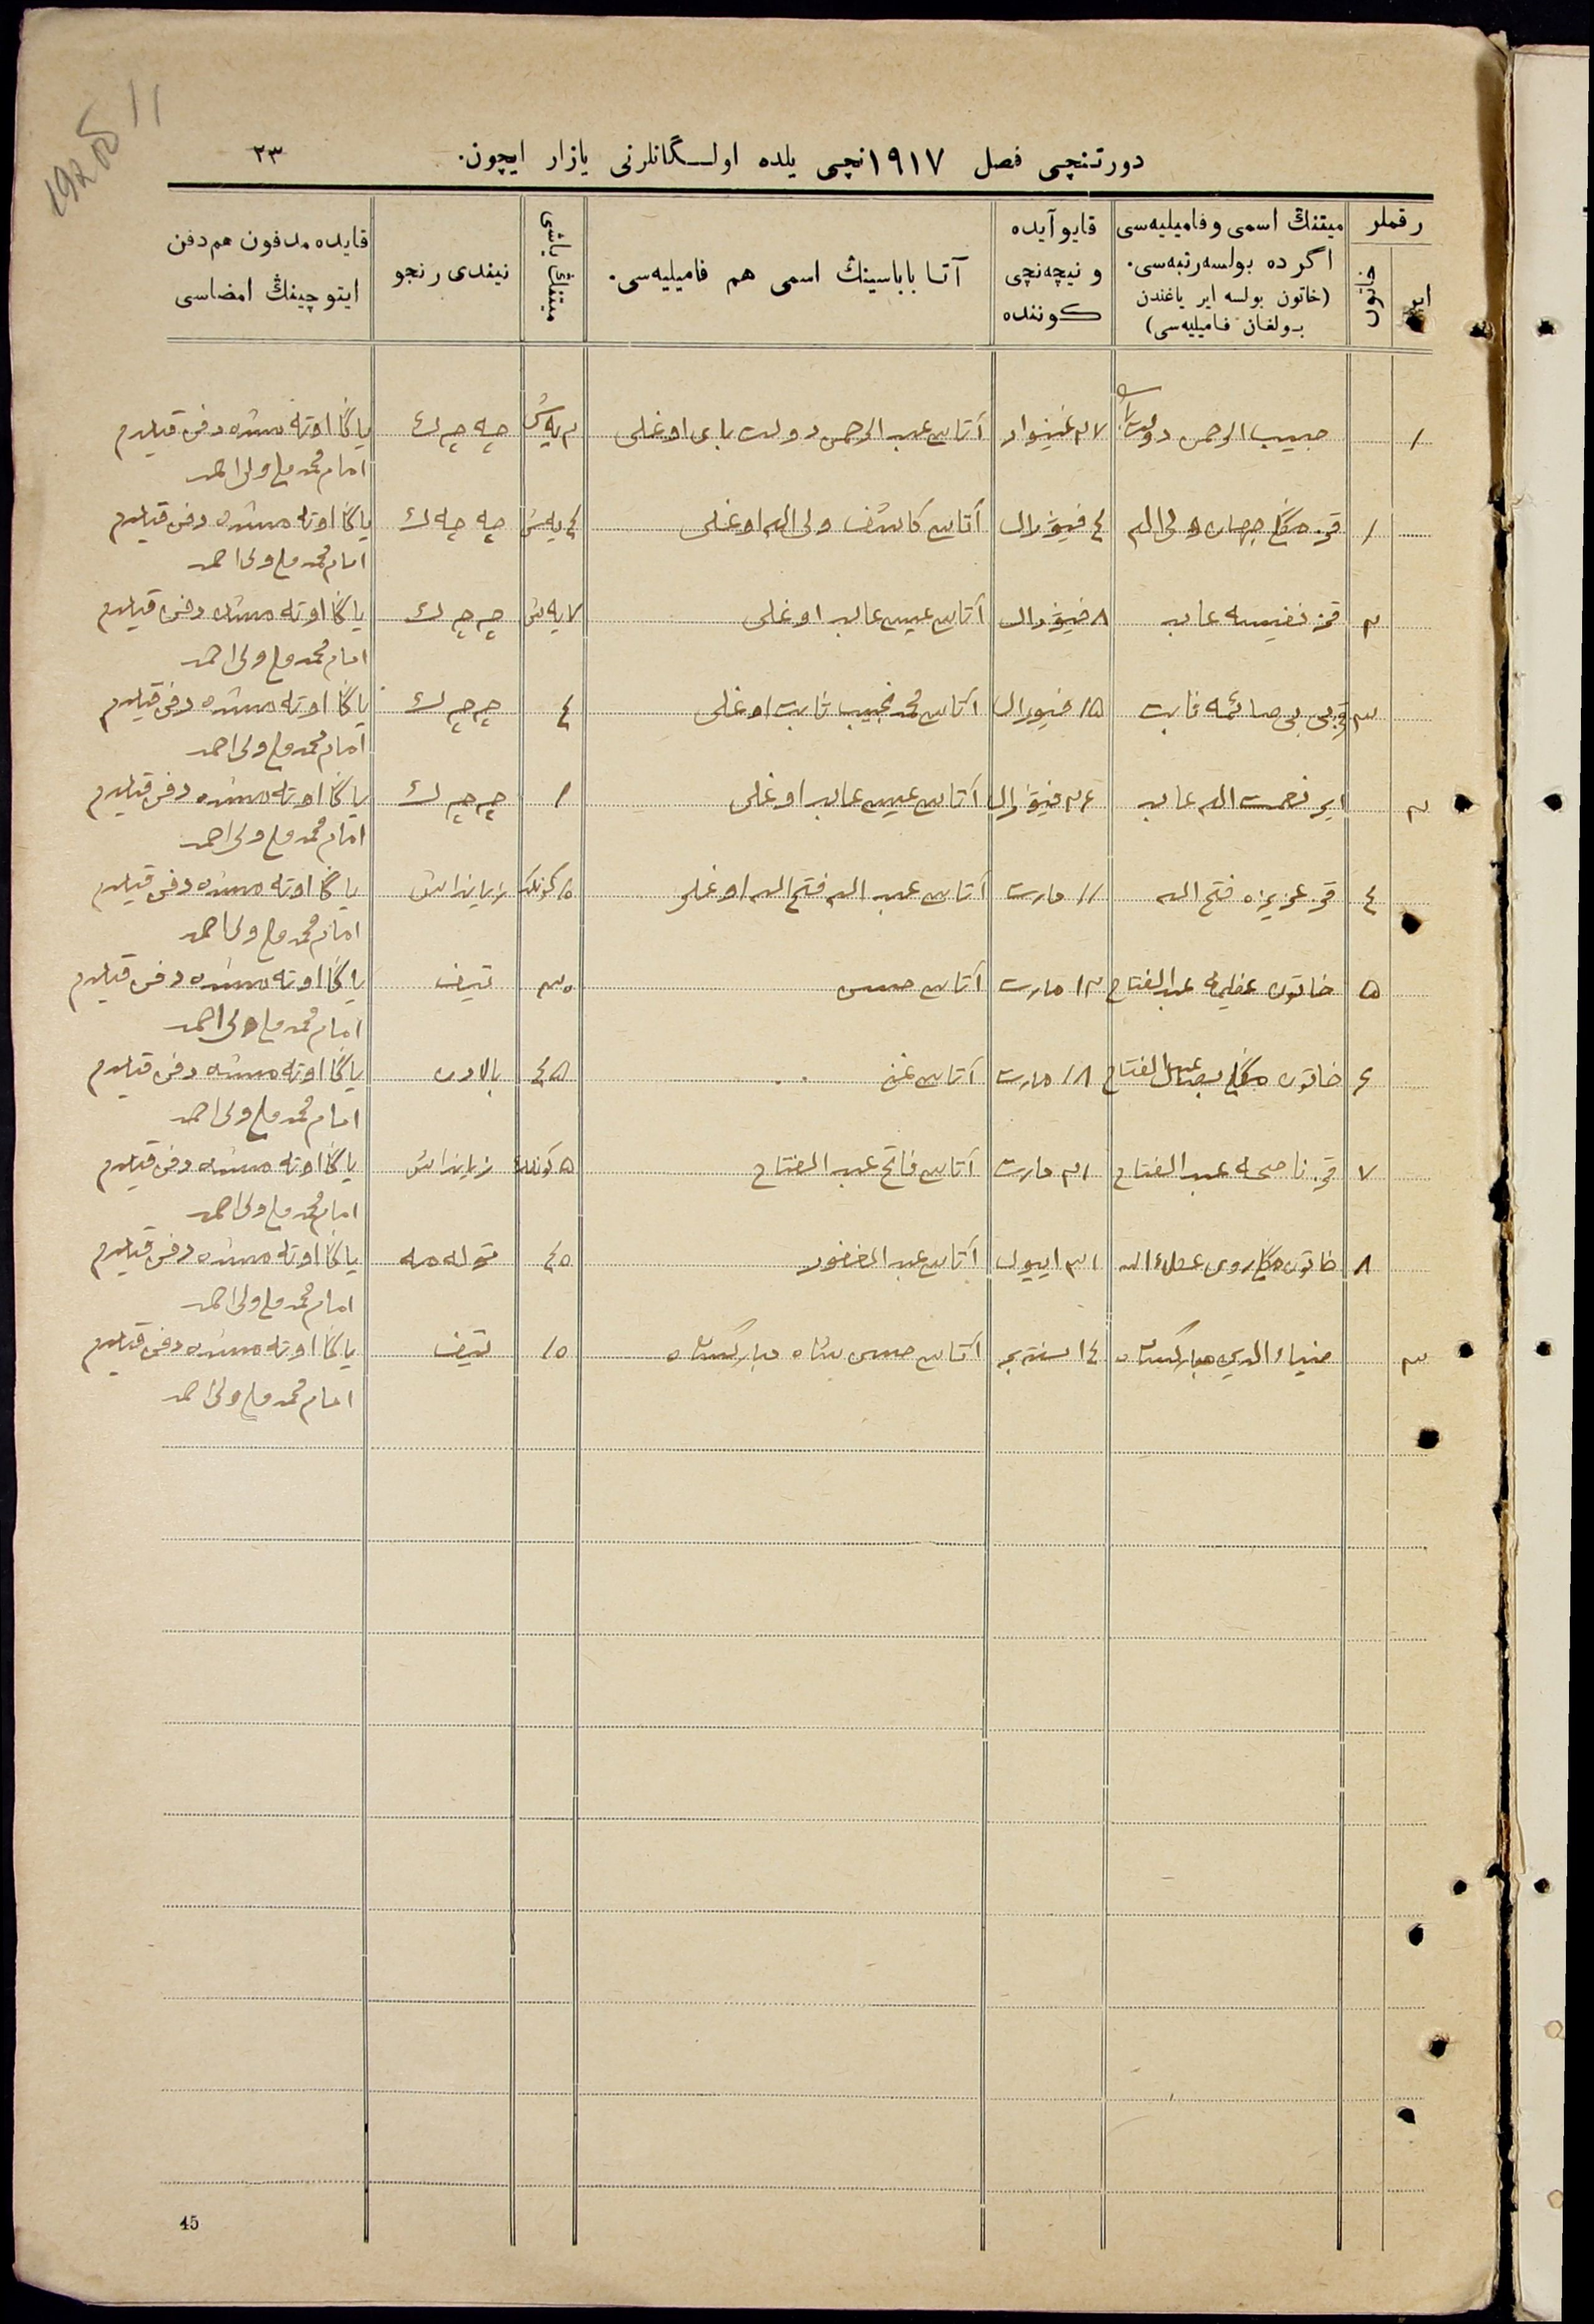 دورتنچی فصل ١٩١٧نچی یلده اولـگانلرنی یازار ایچون.
٢٣
رقملر
ایر
خاتون
میتنڭ اسمی و فامیلیه‌سی اگر ده بولسه رتبه‌سی. (خاتون بولسه ایر یاغندن بولغان فامیلیه‌سی)
قایو آیده و نیچه‌نچی کوننده
آتا باباسینڭ اسمی هم فامیلیه‌سی.
میتنڭ یاشی
نیندی رنجو
قایده مدفون هم دفن ایتوچینڭ امضاسی
١ حبیب الرحمن دولت ٢٧ غینوار آتاسی عبد الرحمن دولت بای اوغلی ٢ یه‌ش چه چه ك یاڭا اوته مشده دفن قیلدم
امام محمد ولی احمد
١ قز جهان ولی الله ٤ فیورال آتاسی کاشف ولی الله اوغلی ٤ یه‌ش چه چه ك یاڭا اوته مشده دفن قیلدم
امام محمد ولی احمد
٢ قز نفیسه عابد ٨ فیورال آتاسی عیسی عابد اوغلی ٧ یه‌ش چه چه ك یاڭا اوته مشده دفن قیلدم
امام محمد ولی احمد
٣ قز بی بی صائمه ثابت ١٥ فیورال آتاسی محمد نجیب ثابت اوغلی ٤ چه چه ك یاڭا اوته مشده دفن قیلدم
امام محمد ولی احمد
٢ ایر نعمت الله عابد ٢٤ فیورال آتاسی عیسی عابد اوغلی ١ چه چه ك یاڭا اوته مشده دفن قیلدم
امام محمد ولی احمد
٤ قز عزیزه فتح الله ١١ مارت آتاسی عبد الله فتح الله اوغلی ١٥ کونلك یاڭا اوته مشده دفن قیلدم
امام محمد ولی احمد
٥ خاتون عظیمه عبد الفتاح ١٢ مارت آتاسی حسن ٣٠ تیف یاڭا اوته مشده دفن قیلدم
امام محمد ولی احمد
٦ خاتون عبد الفتاح ١٨ مارت آتاسی غنی ٤٥ بالادن یاڭا اوته مشده دفن قیلدم
امام محمد ولی احمد
٧ قز ناصحه عبد الفتاح ٢١ مارت آتاسی فاتح عبد الفتاح ٥ کونلك یاڭا اوته مشده دفن قیلدم
امام محمد ولی احمد
٨ خاتون عطاء الله ٣١ اییول آتاسی عبد الغفور ٤٥ یاڭا اوته مشده دفن قیلدم
امام محمد ولی احمد
٣ ضیاء الدین مبارکشاه ١٤ آتاسی حسن شاه مبارکشاه ١٥ تیف یاڭا اوته مشده دفن قیلدم
امام محمد ولی احمد
45